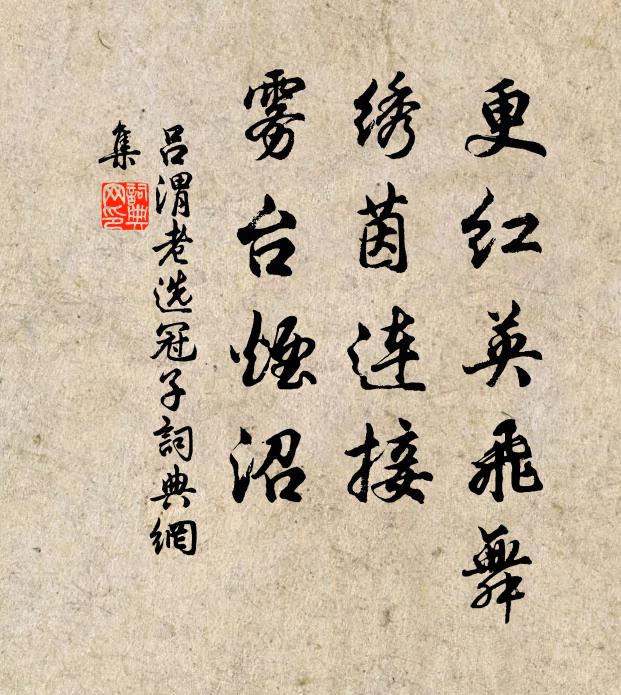 更红英飛舞
绣茵连接
雾台煙沼
吕渭老选冠子詞典網
集
詞典
网印